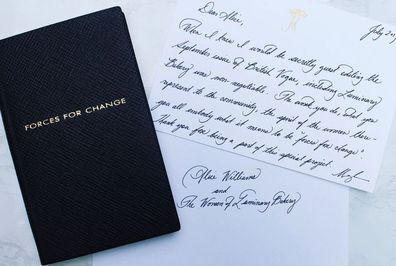 FORCES FOR CHANGE
July 2019
Dear Alice,
When I knew I would be secretly guest editing the
September issue of British Vogue, including Luminary
Bakery was non-negotiable. The work you do, what you
represent to the community, the spirit of the women there-
you all embody what it means to be "force for change".
Thank you for being a part of this special project.
(Alice Williams
and
The Women of Luminary Bakery